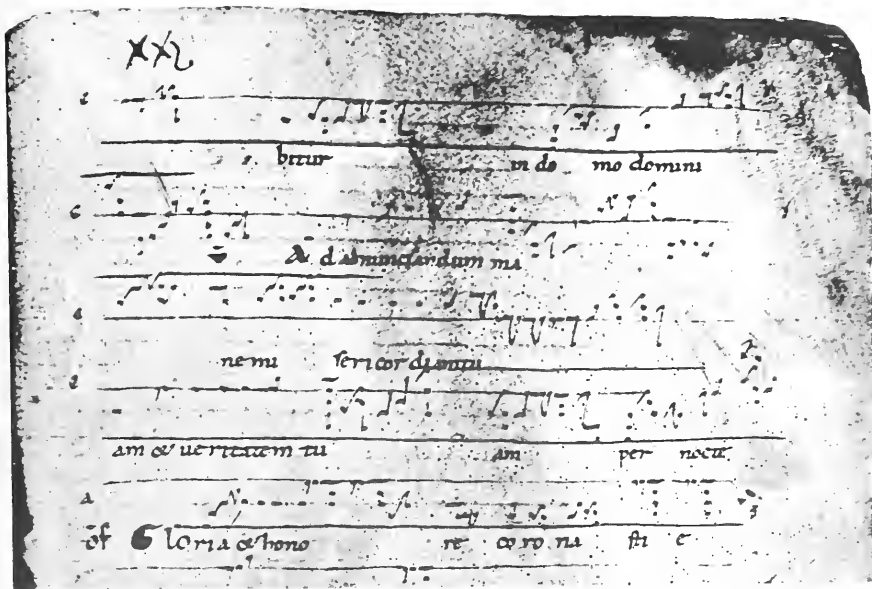 bitur in do mo domini
Ad adnunciandum ma
ne mi sericordiam tu
am & ueritatem tu am per nocte
of Gloria & hono re co ro na sti e